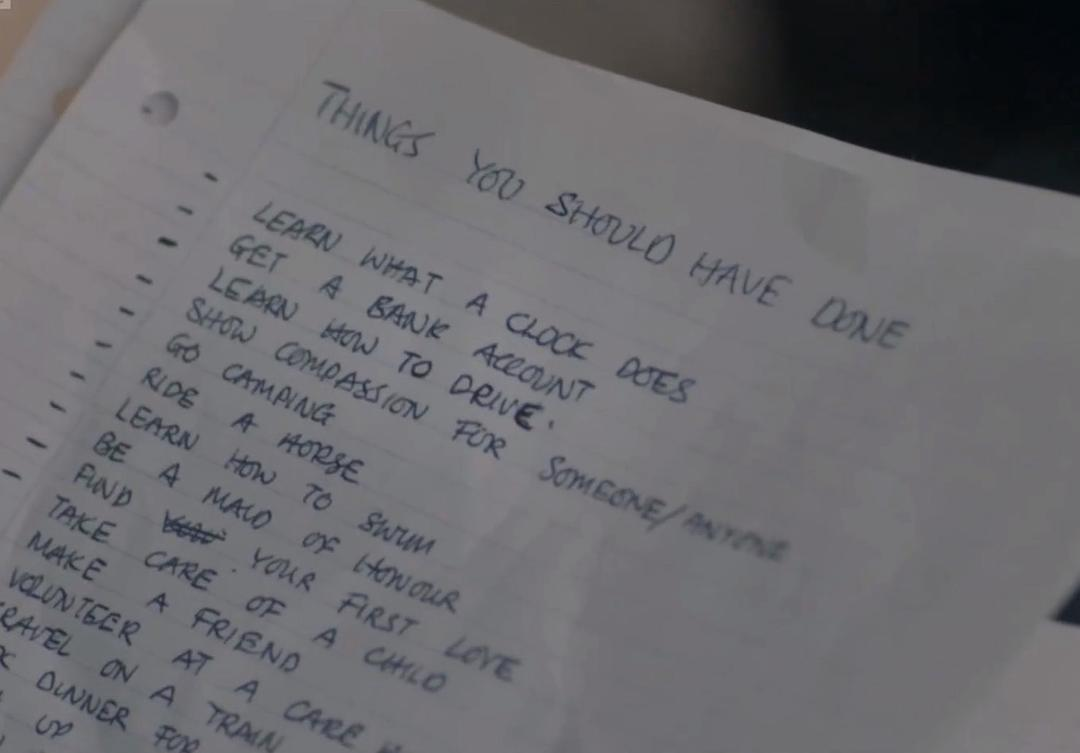 THINGS YOU SHOULD HAVE DONE
- LEARN WHAT A CLOCK DOES
- GET A BANK ACCOUNT
- LEARN HOW TO DRIVE.
- SHOW COMPASSION FOR SOMEONE/ANYONE
- GO CAMPING
- RIDE A HORSE
- LEARN HOW TO SWIM
- BE A MAID OF HONOUR
- FIND YOUR FIRST LOVE
- TAKE CARE OF A CHILD
MAKE A FRIEND
VOLUNTEER AT A CARE
TRAVEL ON A TRAIN
DINNER FOR
UP